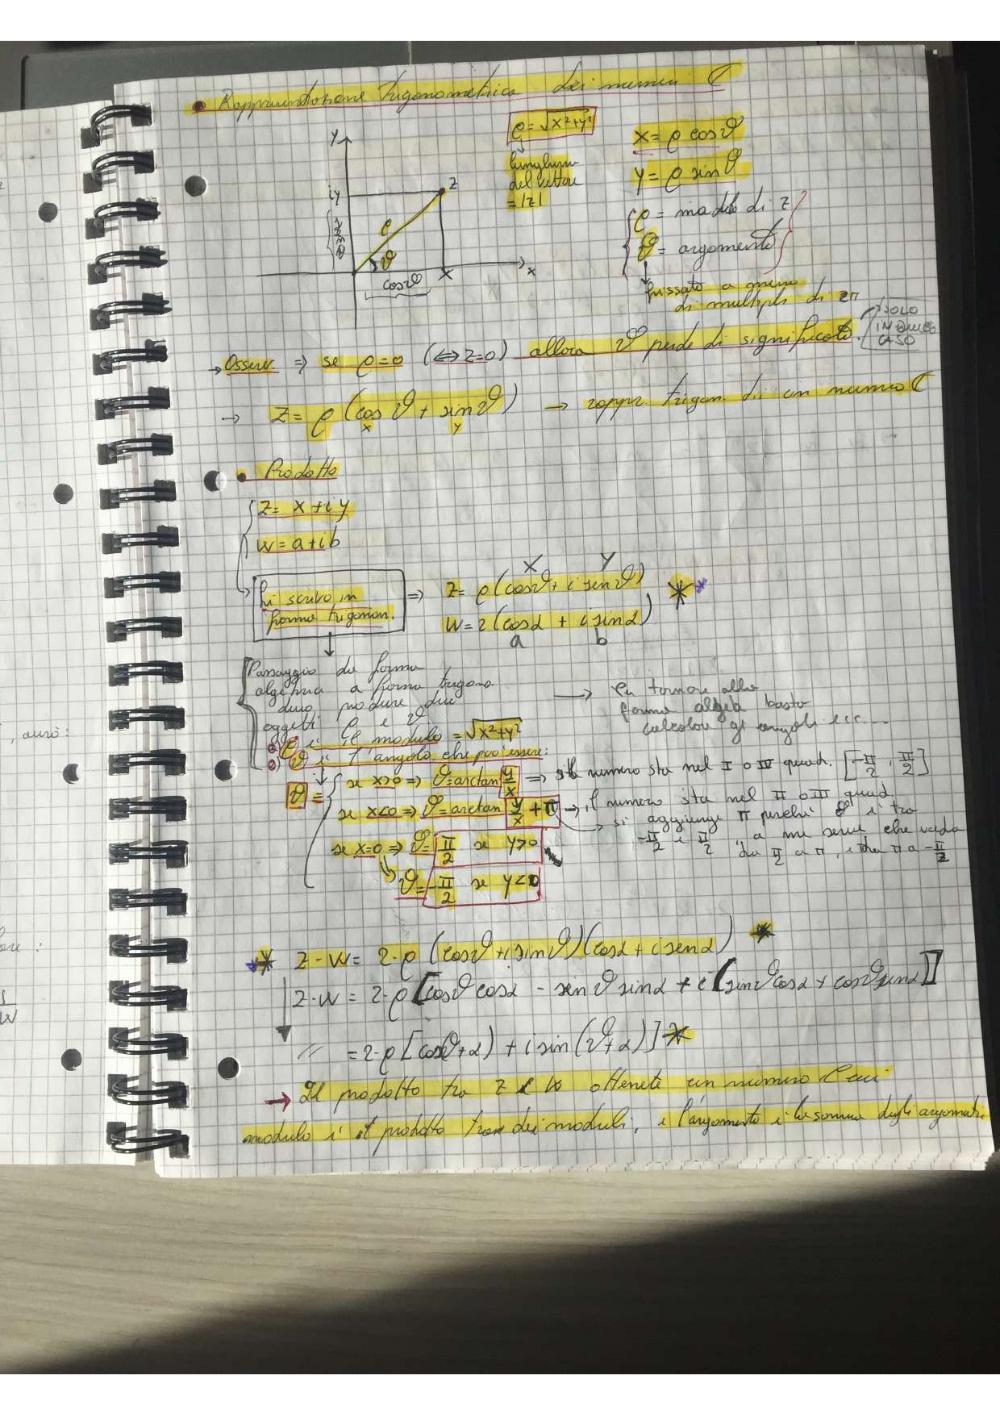 • Rappresentazione trigonometrica dei numeri ℂ
y
ρ = √x²+y²
x = ρ cosϑ
lunghezza
del vettore
= |z|
y = ρ sinϑ
iy
z
ρ
ϑ
cosϑ
x
x
ρ = modulo di z
ϑ = argomento
fissato a meno
di multipli di 2π
SOLO
IN QUESTO
CASO
→ Osserv. ⇒ se ρ=0 (⇔ z=0) allora ϑ perde di significato.
→ z = ρ (cos ϑ + sinϑ) → rappr. trigon. di un numero ℂ
x y
• Prodotto
z = x + iy
w = a + ib
x y
li scrivo in
forma trigonom.
⇒ z = ρ (cosϑ + i sinϑ) *
w = r (cosα + i sinα)
a b
Passaggio da forma
algebrica a forma trigono
devo produrre due
oggetti ρ e ϑ
→ Per tornare alla
forma algeb basta
calcolare gli angoli ecc...
•) ρ è il modulo = √x²+y²
•) ϑ è l'angolo che può essere:
ϑ = se x>0 ⇒ ϑ = arctan y/x ⇒ il numero sta nel I o IV quad. [-π/2, π/2]
se x<0 ⇒ ϑ = arctan y/x + π → il numero sta nel II o III quad.
→ si aggiunge π perché ϑ è tra
-π/2 e π/2 a me serve che vada
da π/2 a π, e da π a -π/2
se x=0 ⇒ ϑ = π/2 se y>0
ϑ = -π/2 se y<0
* z·w = r·ρ (cosϑ + i sinϑ)(cosα + i senα) *
z·w = r·ρ [cosϑ cosα - senϑ sinα + i (sinϑ cosα + cosϑ sinα)]
// = r·ρ [cos(ϑ+α) + i sin(ϑ+α)] *
→ Il prodotto tra z e w ottenete un numero ℂ cui
modulo è il prodotto dei moduli, e l'argomento è la somma degli argomenti.